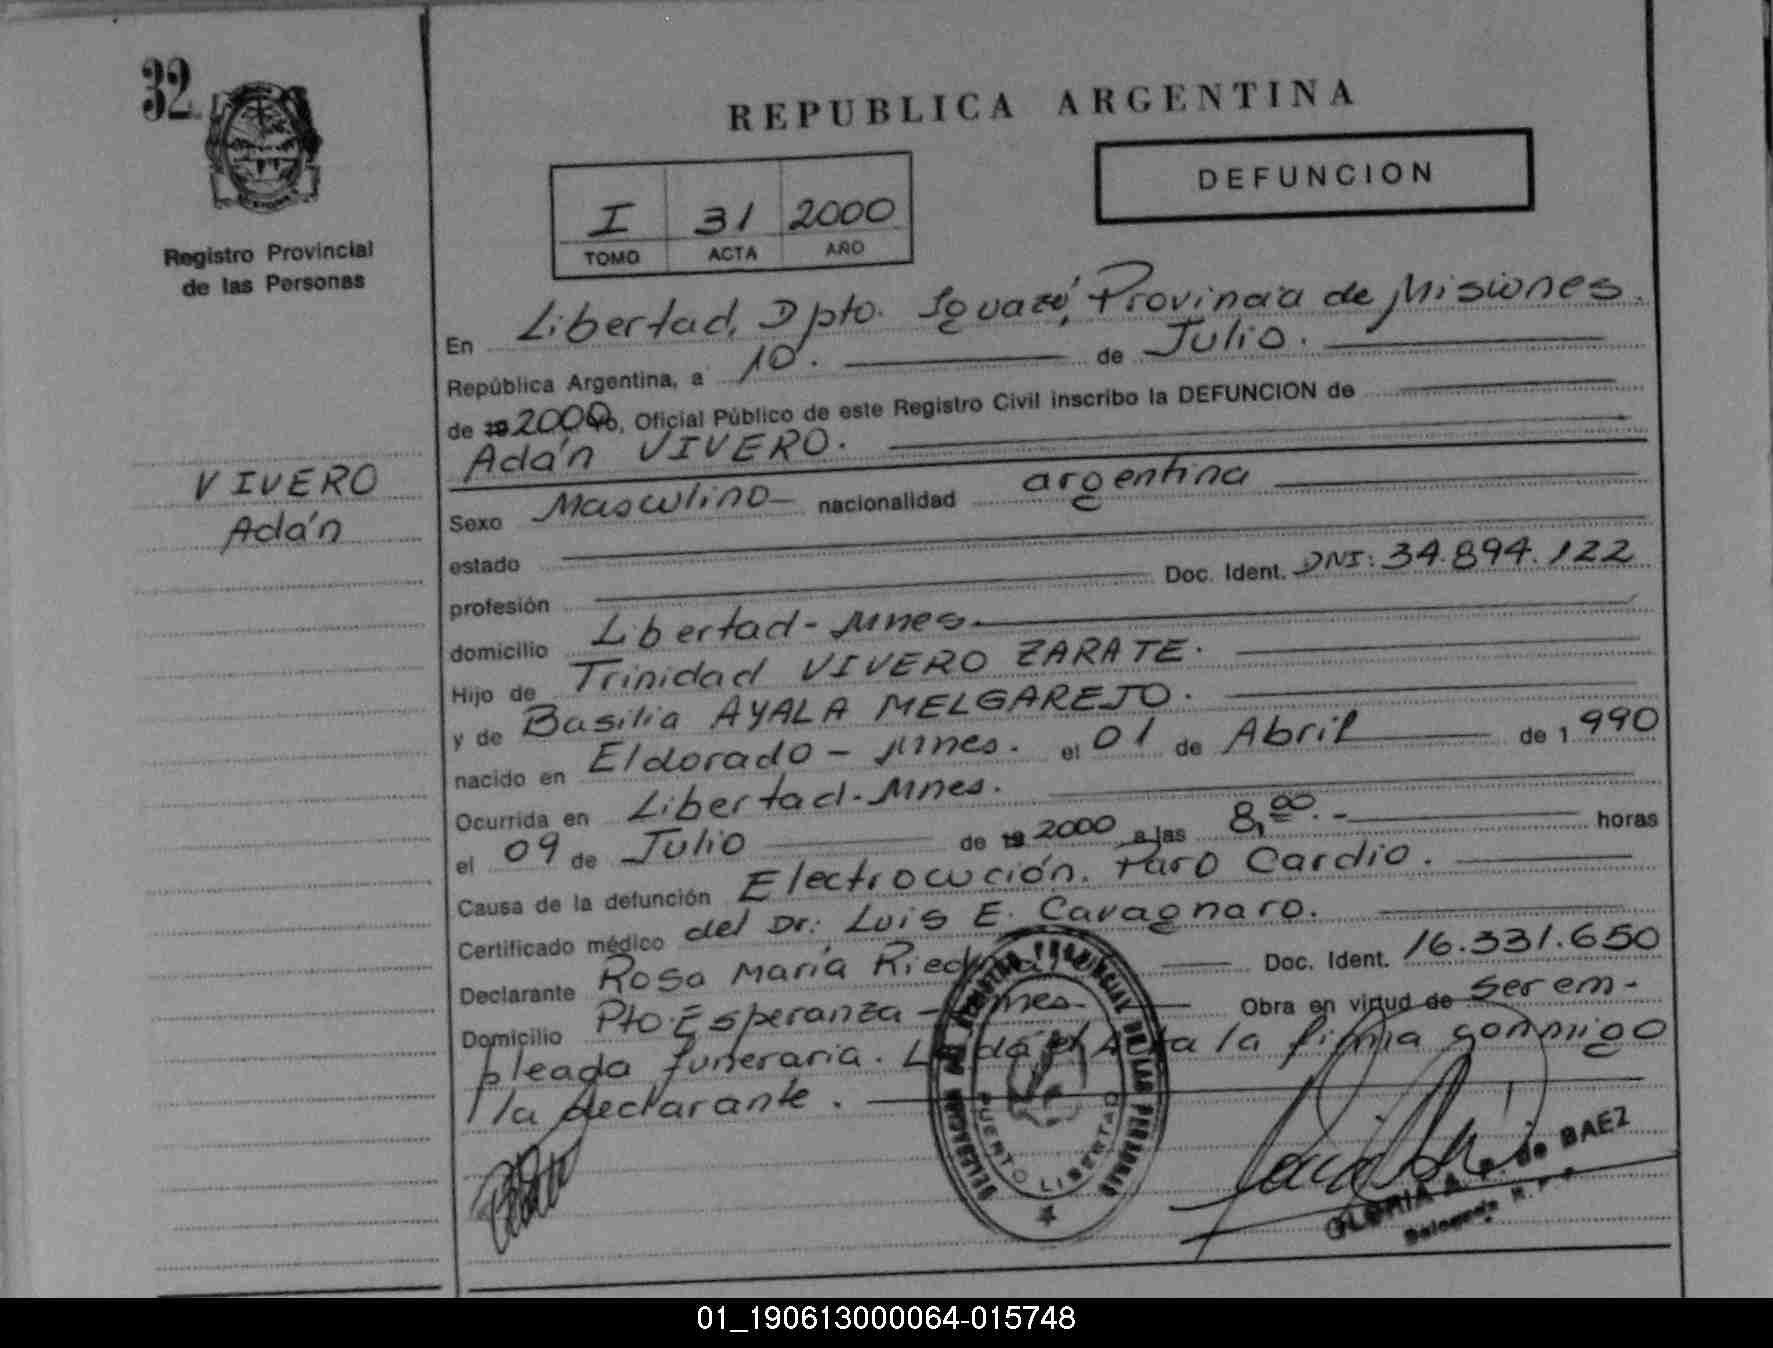 32
REPUBLICA ARGENTINA
DEFUNCION
I 31 2000
TOMO ACTA AÑO
Registro Provincial
de las Personas
En Libertad, Dpto. Iguazú, Provincia de Misiones.
República Argentina, a 10. de Julio.
de 19 2000, Oficial Público de este Registro Civil inscribo la DEFUNCION de
Adán VIVERO.
VIVERO
Adán
Sexo Masculino nacionalidad argentina
estado
profesión Doc. Ident. DNI: 34.894.122
domicilio Libertad - Mnes.
Hijo de Trinidad VIVERO ZARATE.
y de Basilia AYALA MELGAREJO.
nacido en Eldorado - Mnes. el 01 de Abril de 1 990
Ocurrida en Libertad - Mnes.
el 09 de Julio de 19 2000 a las 8,00.- horas
Causa de la defunción Electrocución. Paro Cardio.
Certificado médico del Dr: Luis E. Cavagnaro.
Declarante Rosa María Doc. Ident. 16.331.650
Domicilio Pto. Esperanza - Mnes. Obra en virtud de ser em-
pleada funeraria. Leída el Acta la firma conmigo
la declarante.
DELEGACION DEL REGISTRO PROVINCIAL DE LAS PERSONAS
PUERTO LIBERTAD
GLORIA A. P. de BAEZ
Delegada R. P. P.
01_190613000064-015748